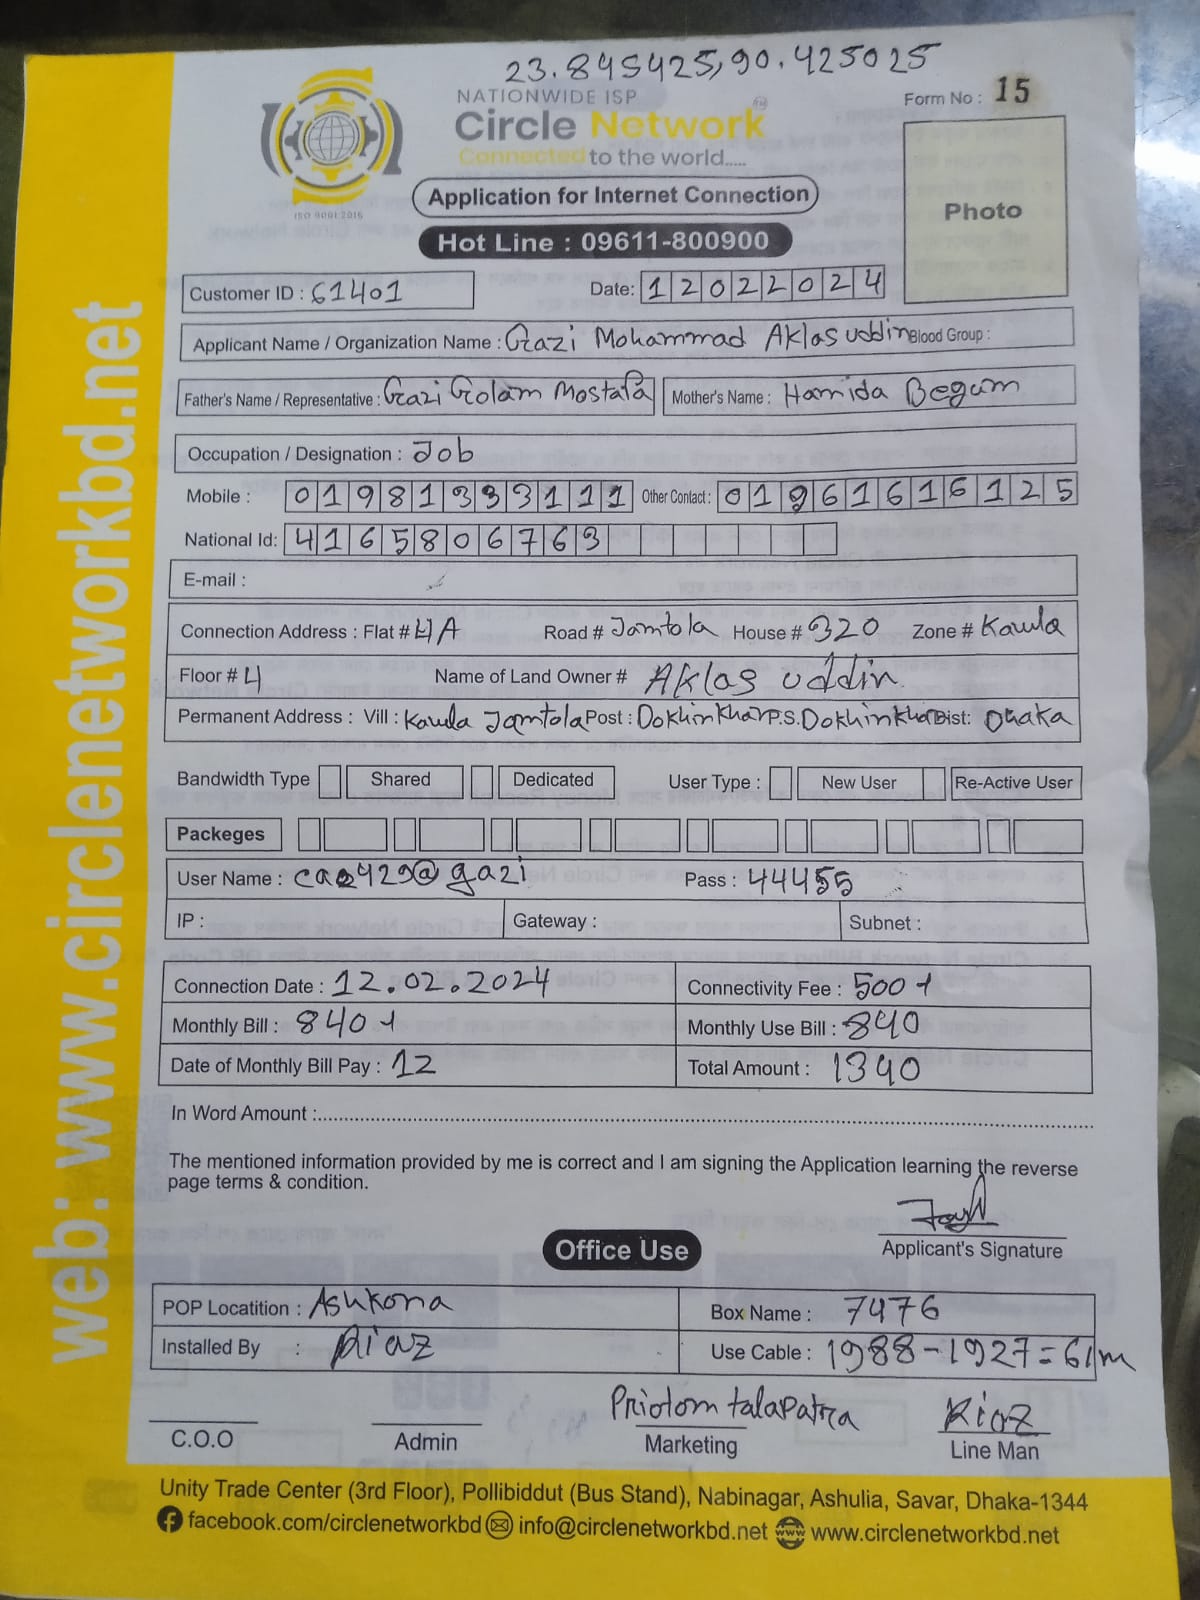 23.845425,90.425025
NATIONWIDE ISP
Form No : 15
Circle Network
Connected to the world.....
ISO 9001:2015
Application for Internet Connection
Photo
Hot Line : 09611-800900
Customer ID : 61401 Date: 12022024
Applicant Name / Organization Name : Gazi Mohammad Aklas uddin Blood Group :
Father's Name / Representative : Gazi Golam Mostafa Mother's Name : Hamida Begum
Occupation / Designation : Job
Mobile : 01981333111 Other Contact : 01961616125
National Id: 4165806763
E-mail :
Connection Address : Flat # 4A Road # Jamtola House # 320 Zone # Kawla
Floor # 4 Name of Land Owner # Aklas uddin
Permanent Address : Vill : Kawla Jamtola Post : Dokhinkhan P.S. Dokhinkhan Dist: Dhaka
Bandwidth Type Shared Dedicated User Type : New User Re-Active User
Packeges
User Name : @gazi Pass : 44455
IP : Gateway : Subnet :
Connection Date : 12.02.2024 Connectivity Fee : 500/-
Monthly Bill : 840/- Monthly Use Bill : 840
Date of Monthly Bill Pay : 12 Total Amount : 1340
In Word Amount :
The mentioned information provided by me is correct and I am signing the Application learning the reverse
page terms & condition.
Applicant's Signature
Office Use
POP Locatition : Ashkona Box Name : 7476
Installed By : Riaz Use Cable : 1988-1927=61m
Priotom talapatra Riaz
C.O.O Admin Marketing Line Man
Unity Trade Center (3rd Floor), Pollibiddut (Bus Stand), Nabinagar, Ashulia, Savar, Dhaka-1344
facebook.com/circlenetworkbd info@circlenetworkbd.net www.circlenetworkbd.net
web: www.circlenetworkbd.net